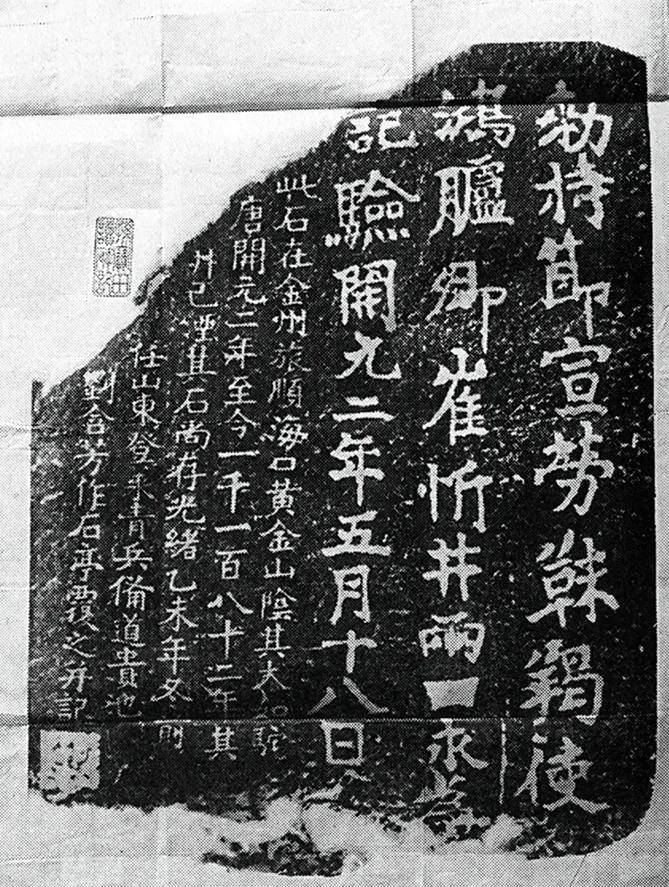 勅持節宣勞靺羯使
鴻臚卿崔忻井兩口永為
記驗開元二年五月十八日
此石在金州旅順海口黃金山陰其大如駝
唐開元二年至今一千一百八十二年其
井已湮其石尚存光緒乙未年冬前
任山東登萊青兵備道貴池
劉含芳作石亭覆之并記